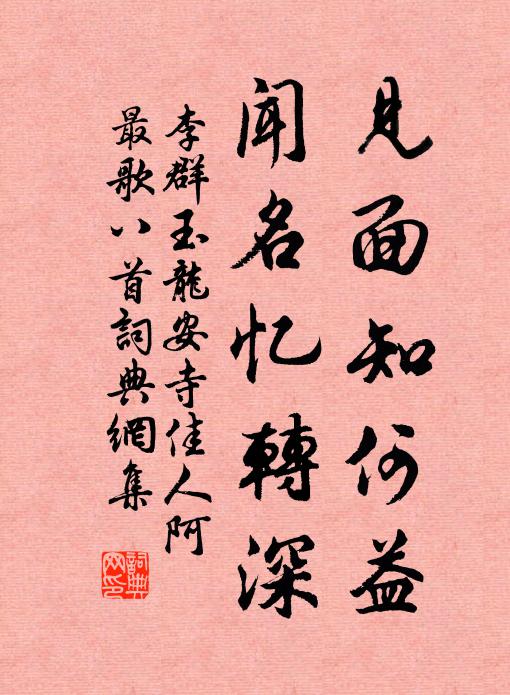 見面知何益
聞名忆轉深
李群玉龍安寺佳人阿
最歌八首詞典網集
詞典网印